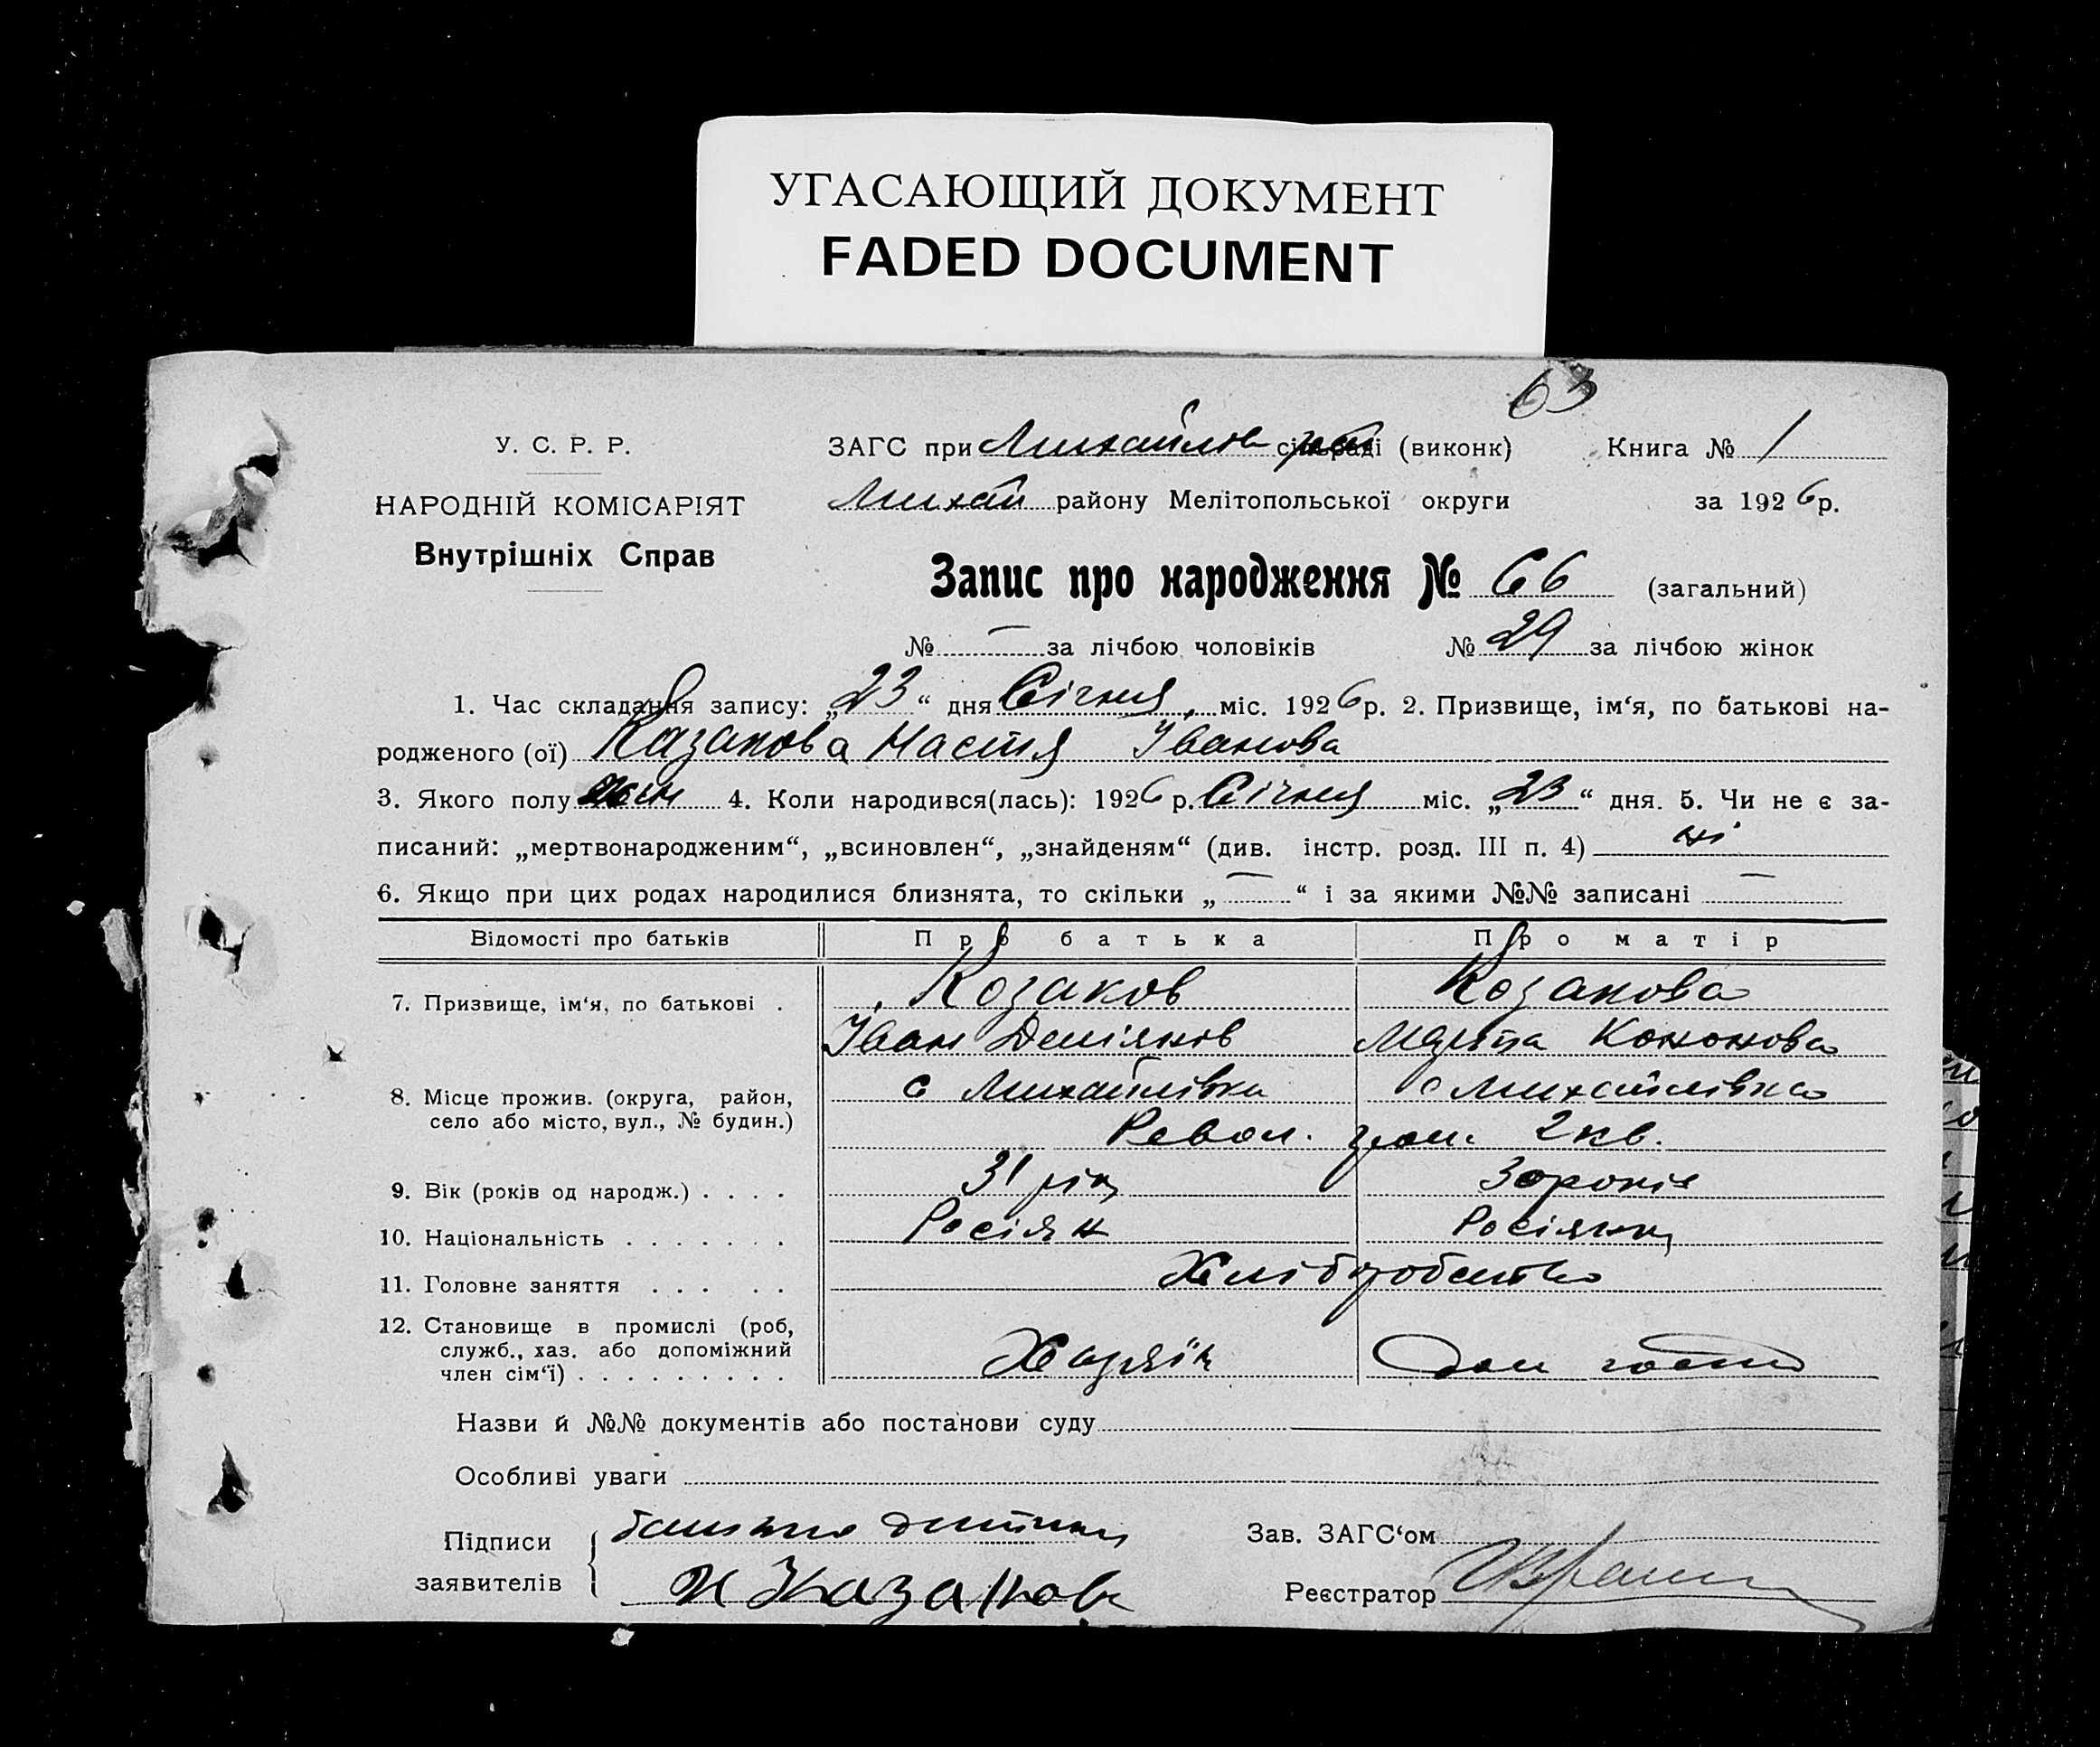 УГАСАЮЩИЙ ДОКУМЕНТ
FADED DOCUMENT
63
У. С. Р. Р.
ЗАГС при Михайлов сільраді (виконк) Книга № 1
Михай району Мелітопольської округи за 1926 р.
НАРОДНІЙ КОМІСАРІЯТ
Внутрішніх Справ
Запис про народження № 66 (загальний)
№ — за лічбою чоловіків № 29 за лічбою жінок
1. Час складання запису: „23“ дня Січня міс. 1926 р. 2. Призвище, ім‘я, по батькові на-
родженого (ої) Казакова Настя Іванова
3. Якого полу жін 4. Коли народився(лась): 1926 р. Січня міс. „23“ дня. 5. Чи не є за-
писаний: „мертвонародженим“, „всиновлен“, „знайденям“ (див. інстр. розд. III п. 4) ні
6. Якщо при цих родах народилися близнята, то скільки „—“ і за якими №№ записані —
Відомості про батьків Про батька Про матір
7. Призвище, ім‘я, по батькові . Козаков Козакова
Іван Деміянов Кононова
8. Місце прожив. (округа, район, с Михайлівка с Михайлівка
село або місто, вул., № будин.) Револ. 2 кв.
9. Вік (років од народж.) . . . . 31 рік 30 років
10. Національність . . . . . . . Росіян Росіянка
11. Головне заняття . . . . . Хліборобство
12. Становище в промислі (роб, служб., хаз. або допоміжний член сім‘ї) . . . . . . . . . Хазяїн Дом
Назви й №№ документів або постанови суду
Особливі уваги
Підписи заявителів батько дитини
И Казаков
Зав. ЗАГС‘ом
Реєстратор